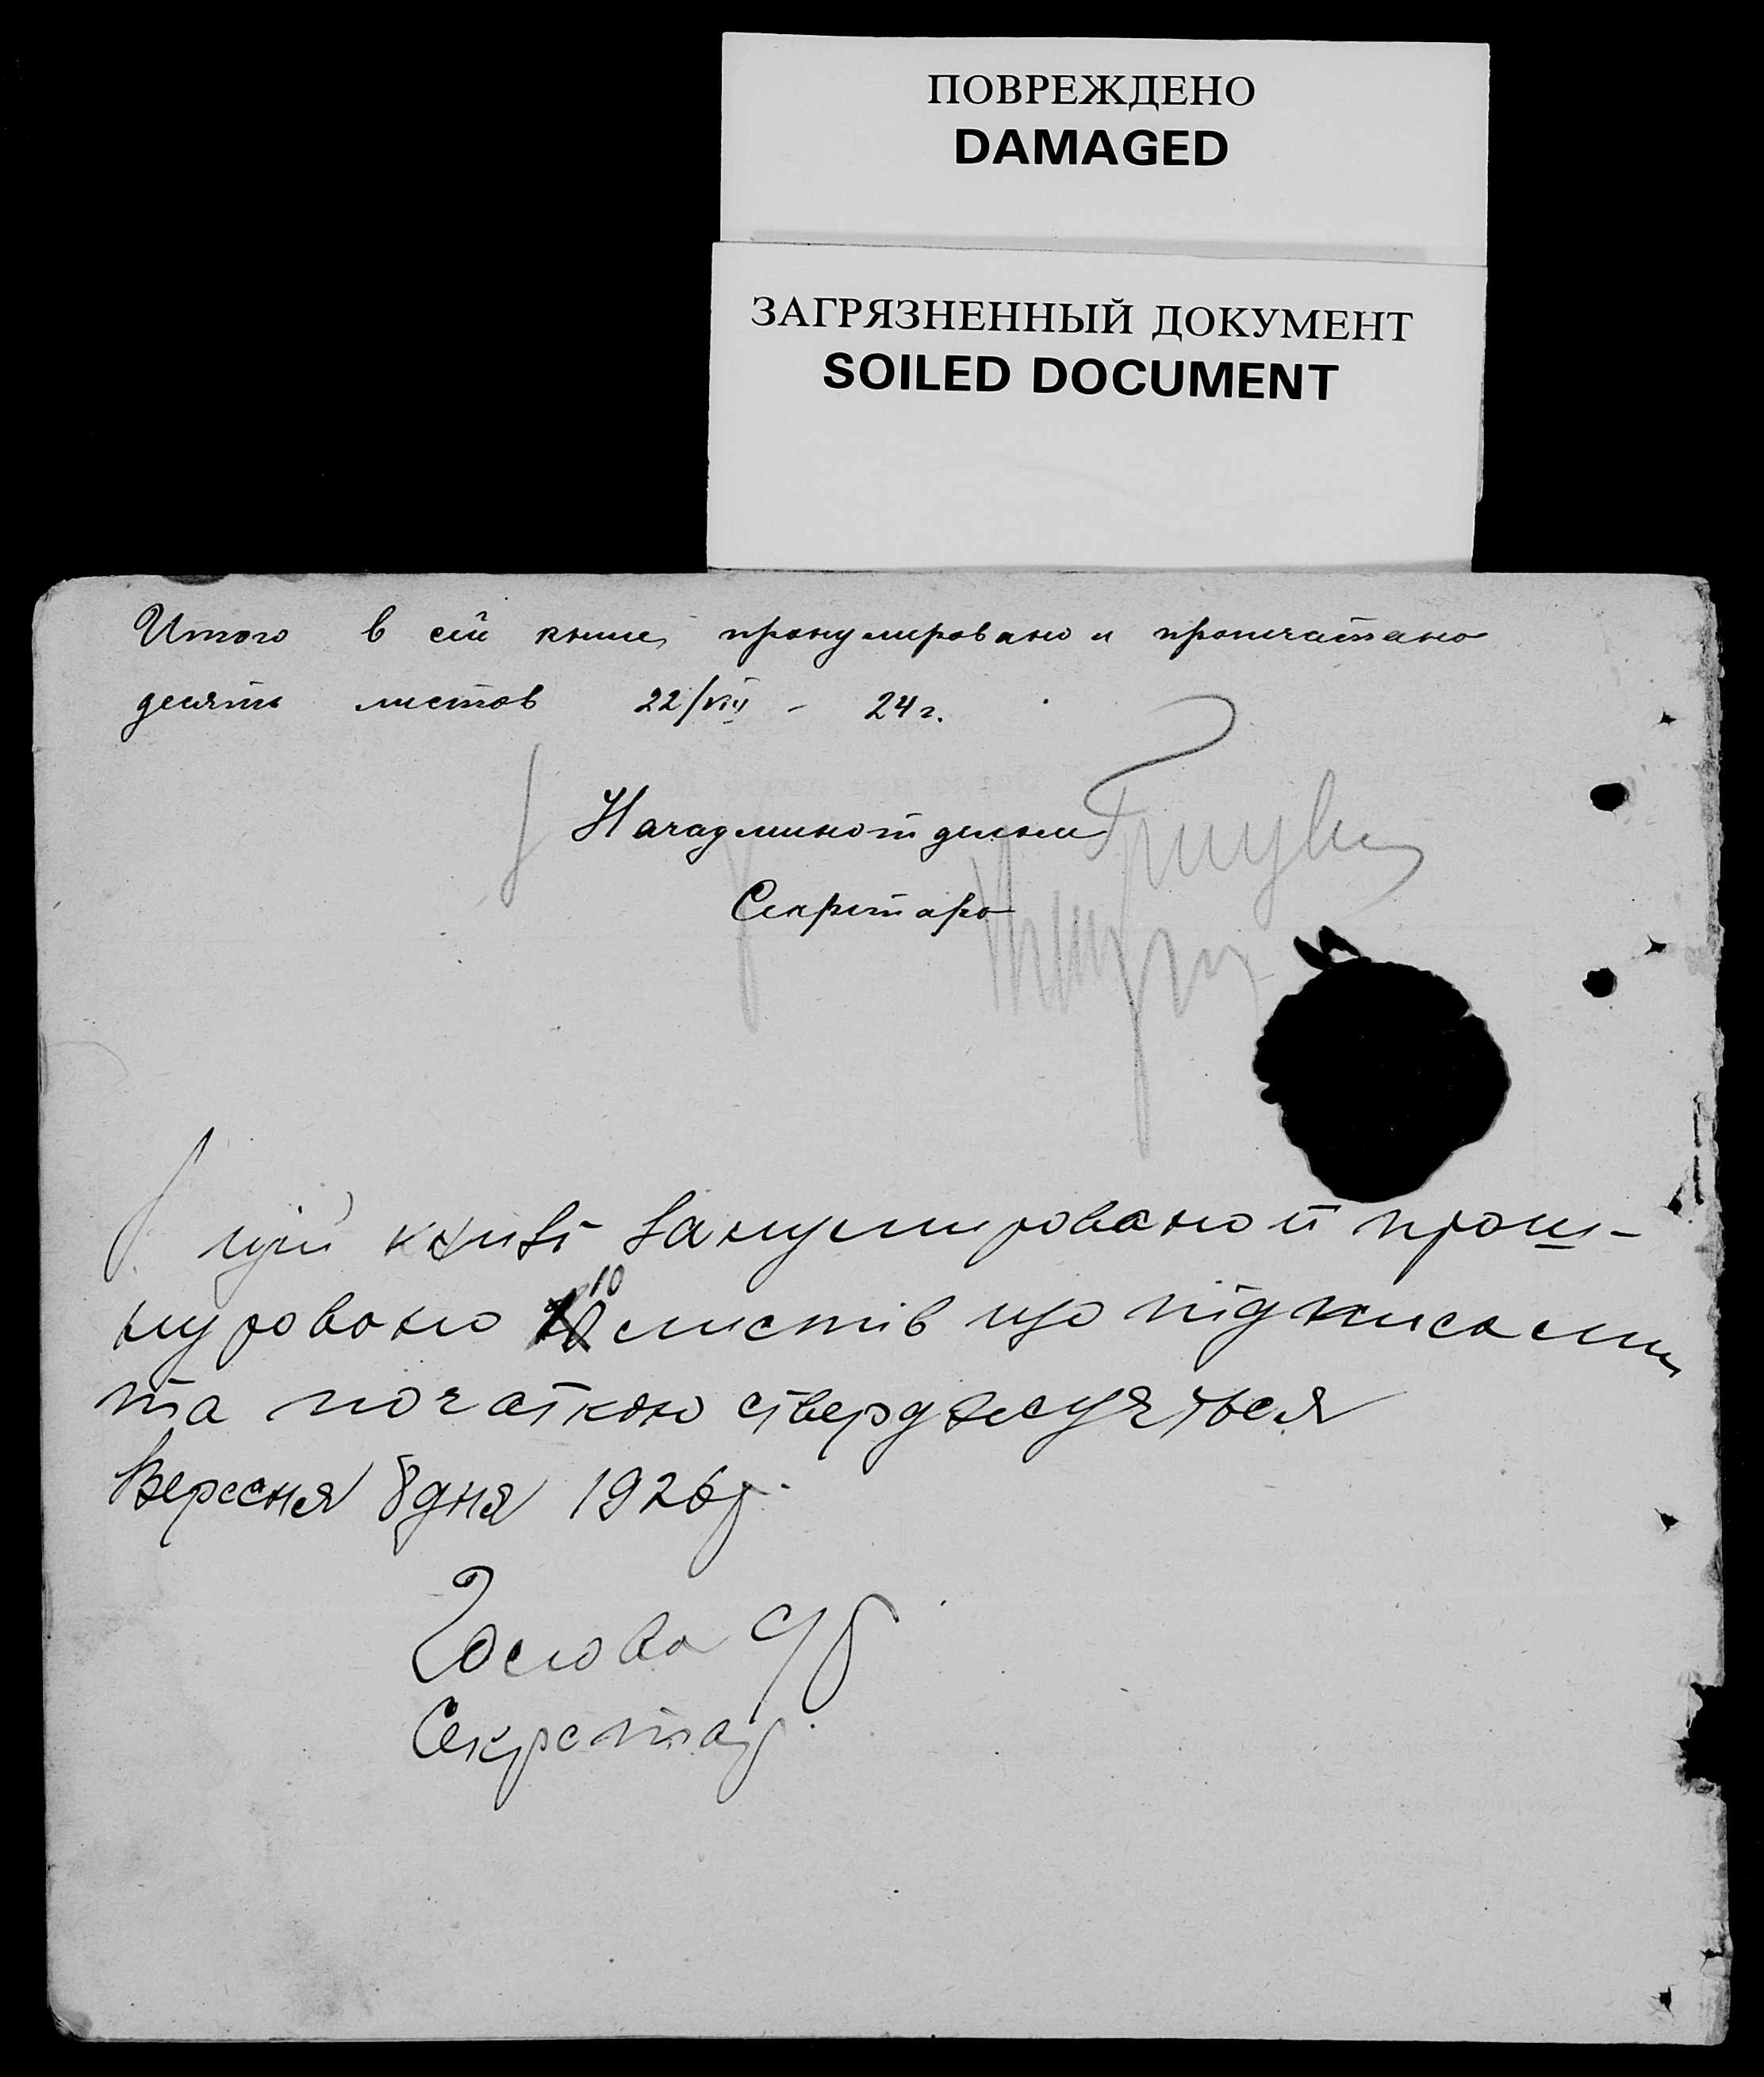 ПОВРЕЖДЕНО
DAMAGED
ЗАГРЯЗНЕННЫЙ ДОКУМЕНТ
SOILED DOCUMENT
Итого в сей книге пронумеровано и пропечатано
десять листов 22/VIII - 24 г.
Начадминотделом
Секретарь
В цій книзі занумировано й прош-
нуровано 10 листів що підписами
та печаткою стверджується
Вересня 8 дня 1926 р.
Голова
Секретар